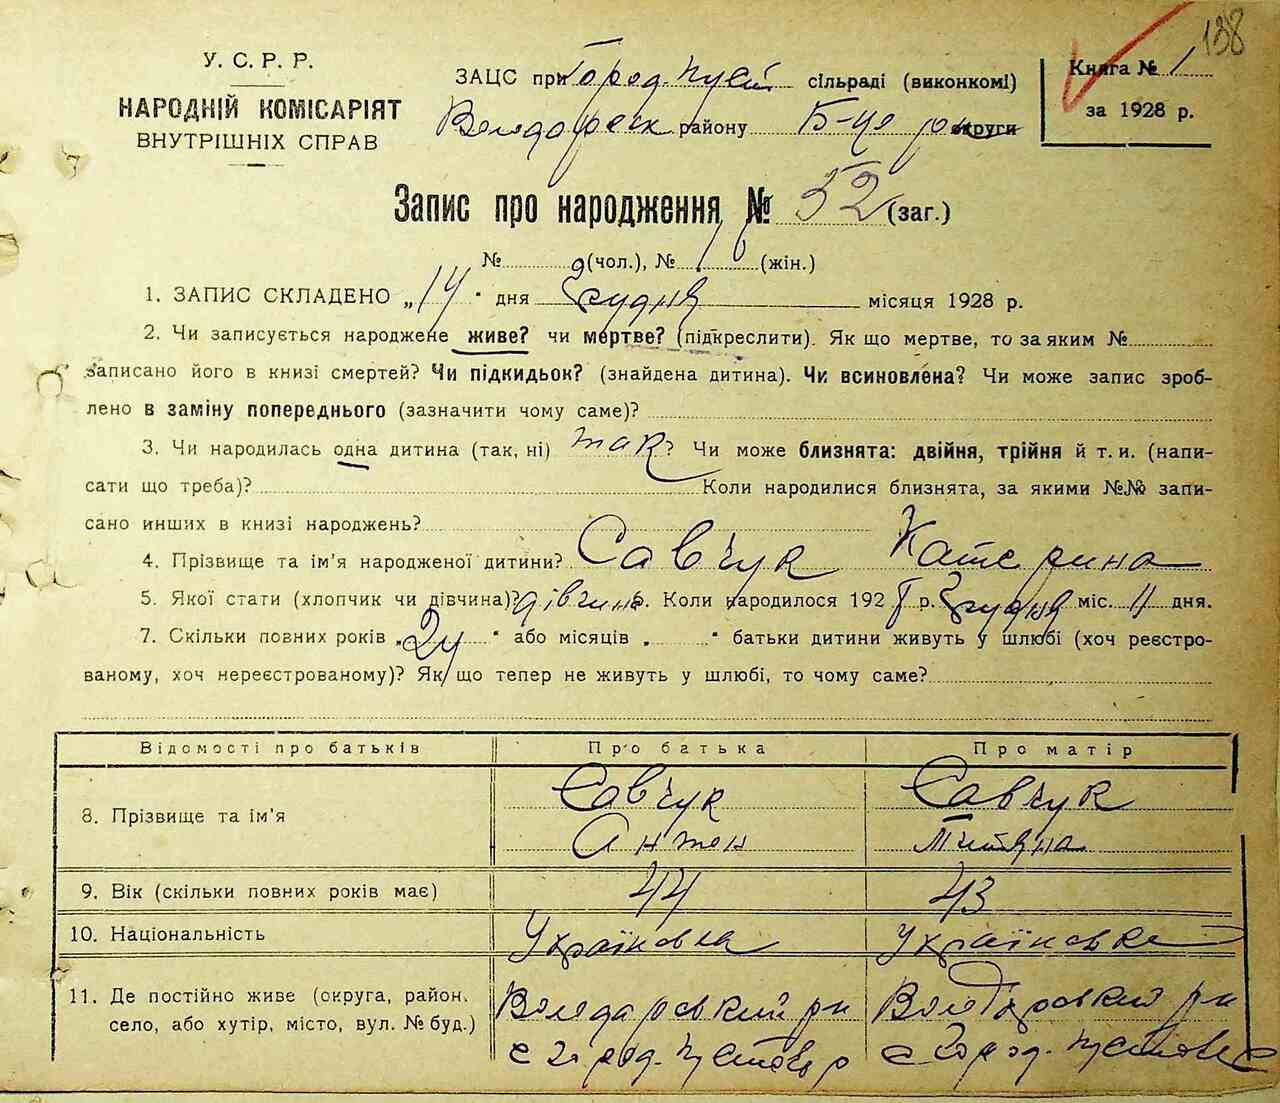 138
У. С. Р. Р.
НАРОДНІЙ КОМІСАРІЯТ
ВНУТРІШНІХ СПРАВ
ЗАЦС при Город. Пуст сільраді (виконкомі)
Володарськ району Б-Це рон округи
Книга № 1
за 1928 р.
Запис про народження № 52 (заг.)
№ (чол.), № (жін.)
1. ЗАПИС СКЛАДЕНО „14" дня Грудня місяця 1928 р.
2. Чи записується народжене живе? чи мертве? (підкреслити). Як що мертве, то за яким №
записано його в книзі смертей? Чи підкидьок? (знайдена дитина). Чи всиновлена? Чи може запис зроб-
лено в заміну попереднього (зазначити чому саме)?
3. Чи народилась одна дитина (так, ні) так? Чи може близнята: двійня, трійня й т. и. (напи-
сати що треба)? Коли народилися близнята, за якими №№ запи-
сано инших в книзі народжень?
4. Прізвище та ім'я народженої дитини? Савчук Катерина
5. Якої стати (хлопчик чи дівчина)? дівчина 6. Коли народилося 1928 р. Грудня міс. 11 дня.
7. Скільки повних років „24" або місяців „ " батьки дитини живуть у шлюбі (хоч реєстро-
ваному, хоч нереєстрованому)? Як що тепер не живуть у шлюбі, то чому саме?
Відомості про батьків Про батька Про матір
8. Прізвище та ім'я Савчук Антон Савчук Титяна
9. Вік (скільки повних років має) 44 43
10. Національність Українська Українська
11. Де постійно живе (округа, район, Володарський рн Володарський рн
село, або хутір, місто, вул. № буд.) с Город. Пустовар с Город. Пустов